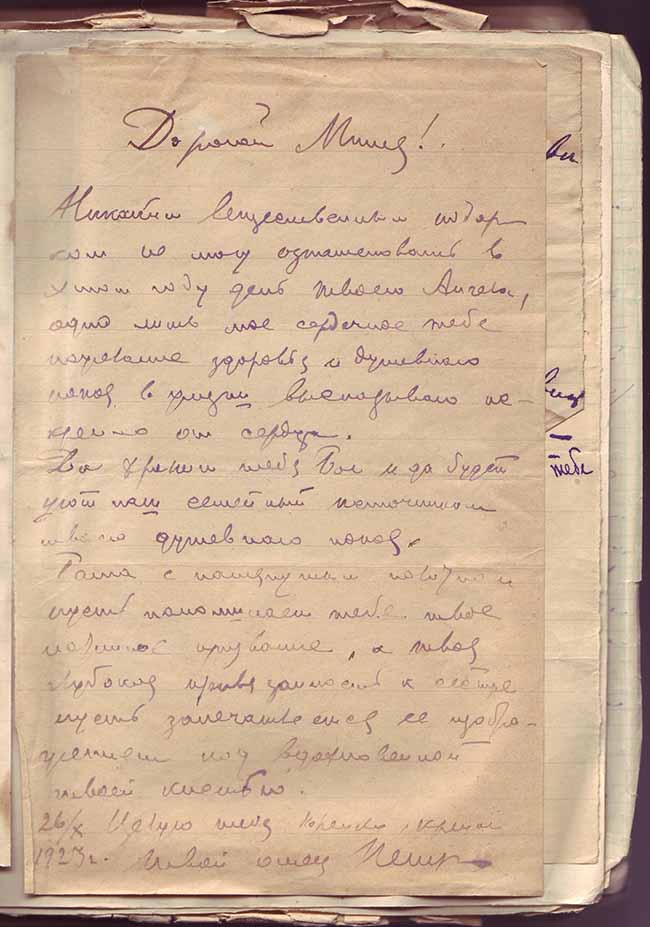 Дорогой Миша!
Никаким вещественным подар
ком не могу ознаменовать в
этом году день твоего Ангела,
одно лишь мое сердечное тебе
пожелание здоровья и душевного
покоя в жизни высказываю ис-
кренно от сердца.
Да хранит тебя Бог и да будет
уют наш семейный источником
твоего душевного покоя.
с
пусть напоминает тебе твое
призвание, а твоя
глубокая привязанность к сестре
пусть запечатлеется ее изобра-
жением под вдохновенной
твоей кистью.
26/X Целую тебя крепко, крепко
1923 г. твой отец
вам
тебе